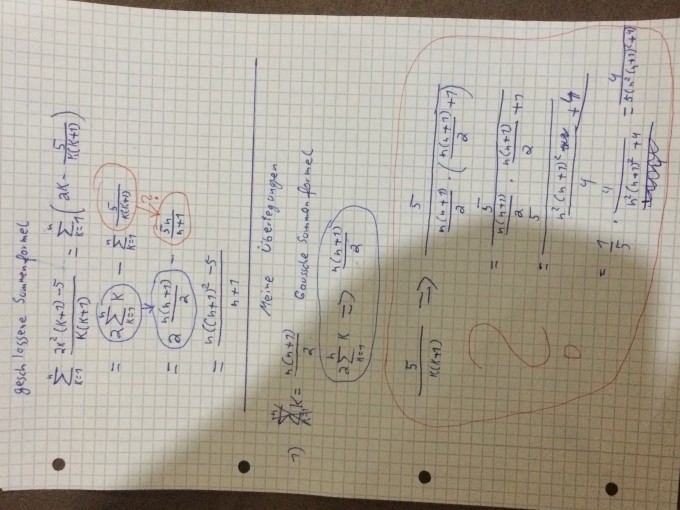 geschlossene Summenformel
∑_{k=1}^{n} \frac{2k²(k+1)-5}{k(k+1)} = ∑_{k=1}^{n} (2k - \frac{5}{k(k+1)})
= 2∑_{k=1}^{n} k - ∑_{k=1}^{n} \frac{5}{k(k+1)}
??
= 2 \frac{n(n+1)}{2} - \frac{5n}{n+1}
= \frac{n((n+1)²-5}{n+1}
Meine Überlegungen
1) ∑_{k=1} k = \frac{n(n+1)}{2} Gaussche Summenformel
2∑_{k=1}^{n} k => \frac{n(n+1)}{2}
\frac{5}{k(k+1)} => \frac{5}{\frac{n(n+1)}{2} · (\frac{n(n+1)}{2}+1)}
= \frac{5}{\frac{n(n+1)}{2} · \frac{n(n+1)}{2}+1}
= \frac{5}{\frac{n²·(n+1)²+4}{4}}
?
= \frac{1}{5} · \frac{4}{n²(n+1)²+4} = \frac{4}{5(n²(n+1)²+4)}